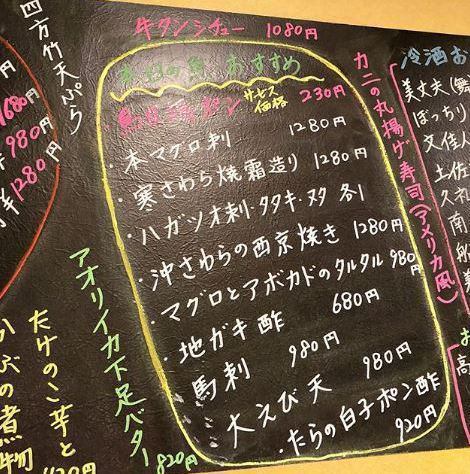 牛タンシチュー 1080円
本日の魚 おすすめ
サービス価格 230円
・本マグロ刺 1280円
・寒さわら焼霜造り 1280円
・ハガツオ刺・タタキ・ヌタ 各1
・沖さわらの西京焼き 1280円
・マグロとアボカドのタルタル 980円
・地ガキ酢 680円
馬刺 980円
大えび天 980円
・たらの白子ポン酢 920円
四方竹天ぷら
680円
980円
1280円
アオリイカ下足バター 820円
たけのこ芋と
かぶの煮物
カニの丸揚げ寿司(アメリカ風)
冷酒お
美丈夫(舞
ぼっちり
文佳人
土佐
久礼
南
船
お
高